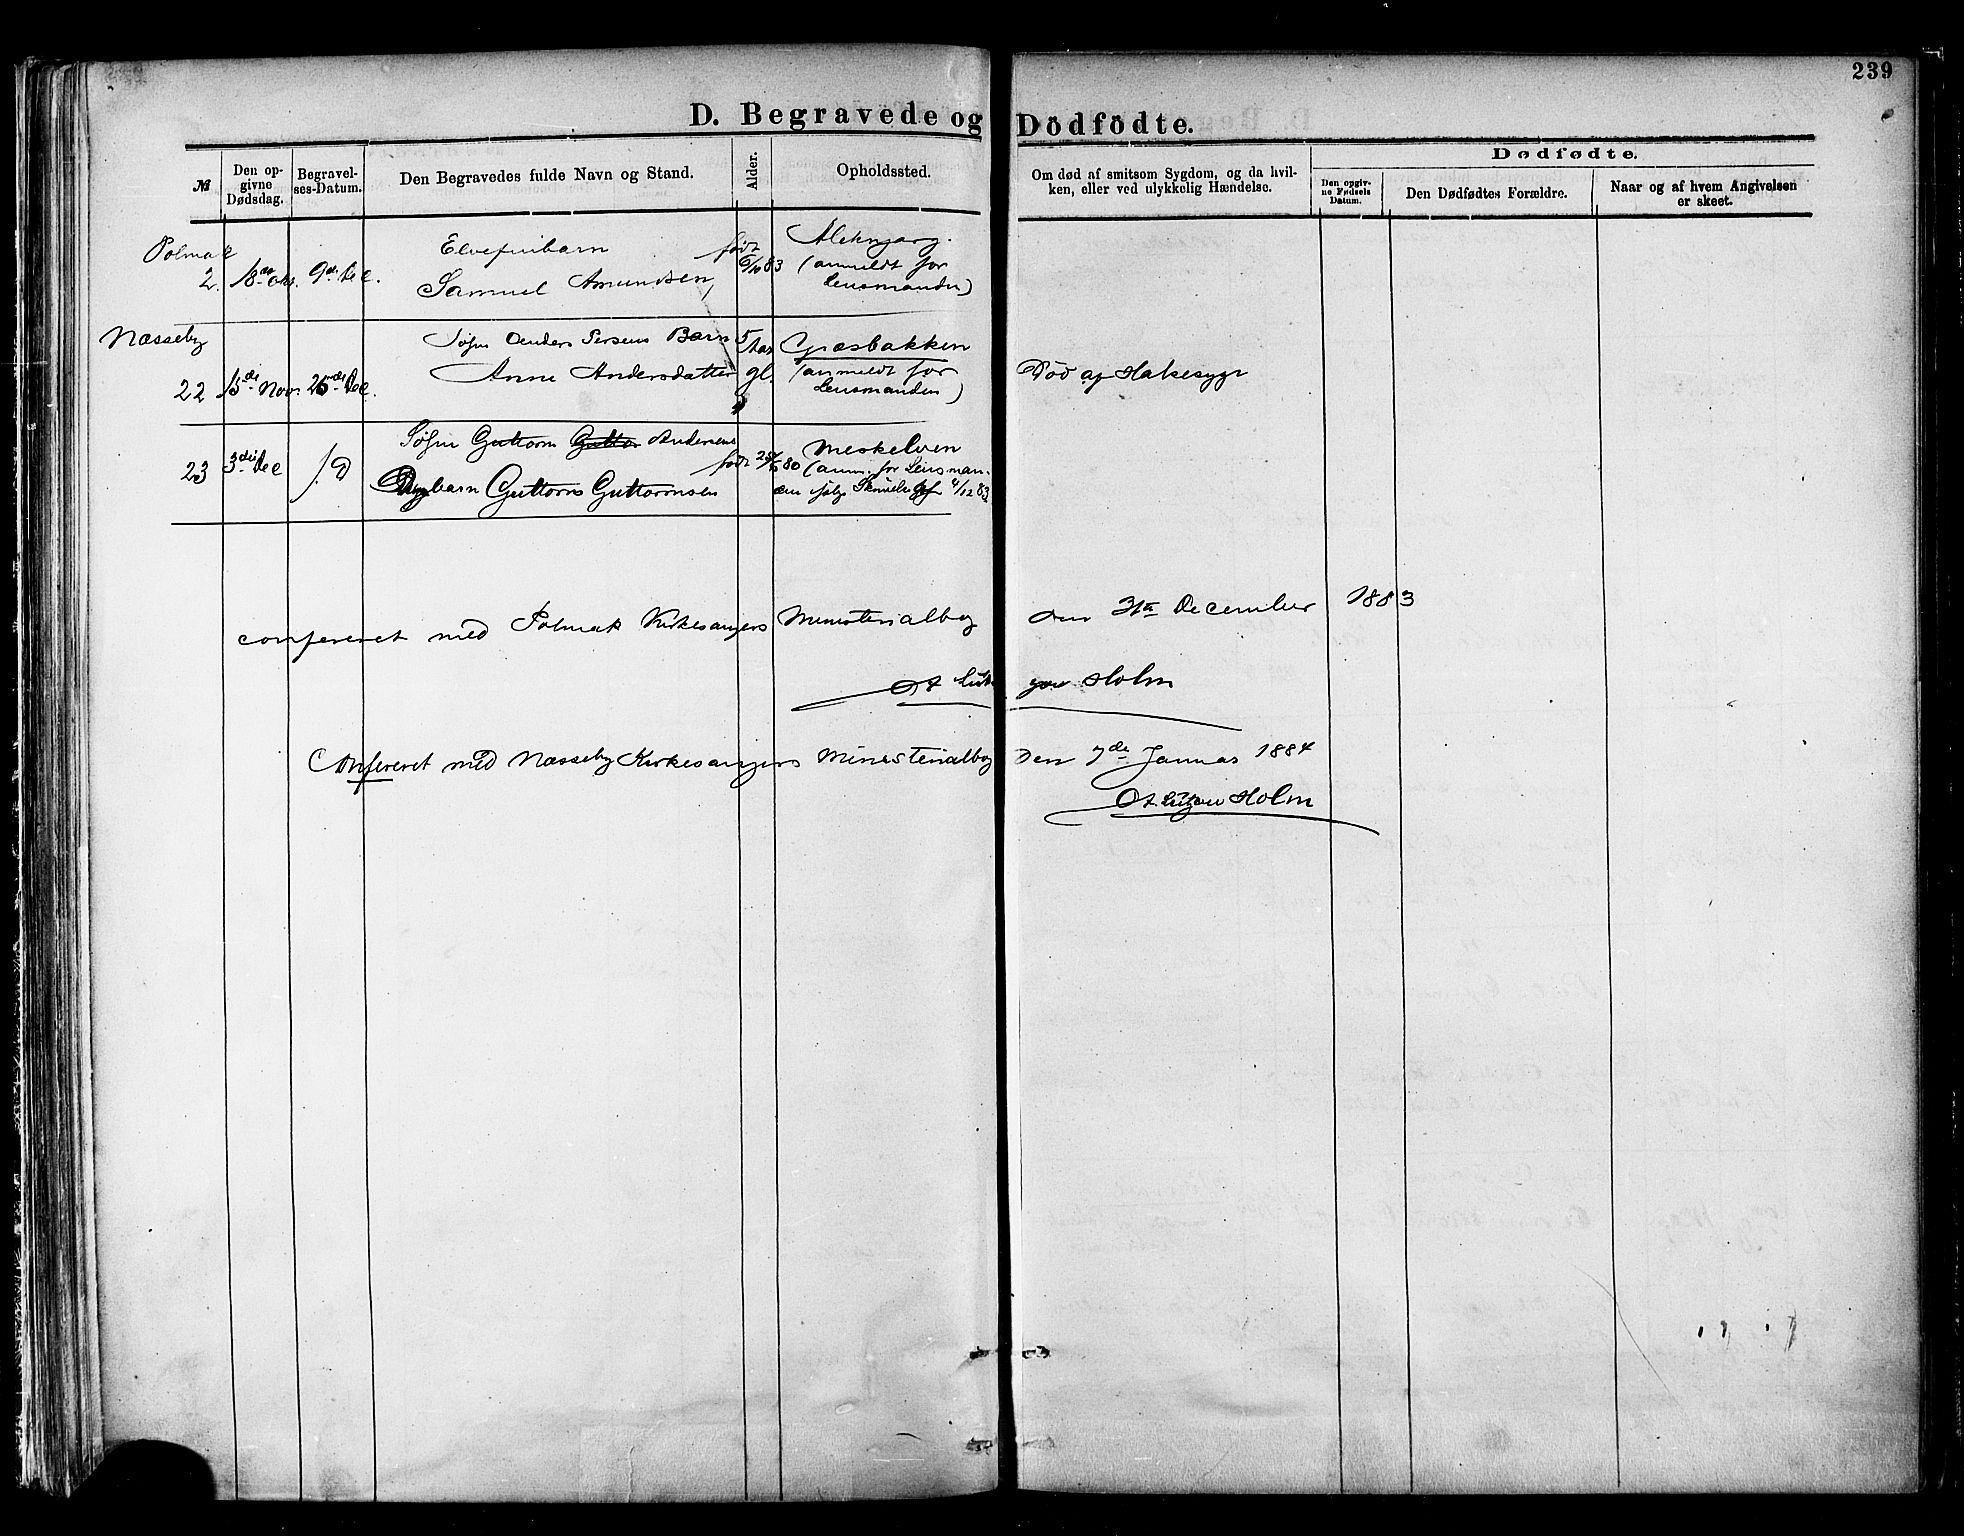 239
D. Begravede og Dödfödte.
№
Den opgivne Dødsdag.
Begravelses-Datum.
Den Begravedes fulde Navn og Stand.
Alder.
Opholdssted.
Om død af smitsom Sygdom, og da hvilken, eller ved ulykkelig Hændelse.
Dødfødte.
Den opgivne Fødsels Datum.
Den Dødfødtes Forældre.
Naar og af hvem Angivelsen er skeet.
Polmak
Elvefinbarn født
2. 18de Okt. 9de Dec. Samuel Amundsen, 6/10 83 (anmeldt for
Lensmanden)
Næsseby
Søfin Anders Persens Barn 5 Aar Græsbakken
22 15de Nov. 26de Dec. Anne Andersdatter gl. (anmeldt for Død af Halsesyge
Lensmanden)
Søfin Guttorm Andersens Meskelven
23 3die Dec født 80 (anm. for Lensman-
barn Guttorm Guttormsen den 4/12 83
confereret med Polmak Kirkesangers Ministerialbog den 31te December 1883
Ot Lützow Holm
Confereret med Næsseby Kirkesangers Ministerialbog den 7de Januar 1884
Ot Lützow Holm